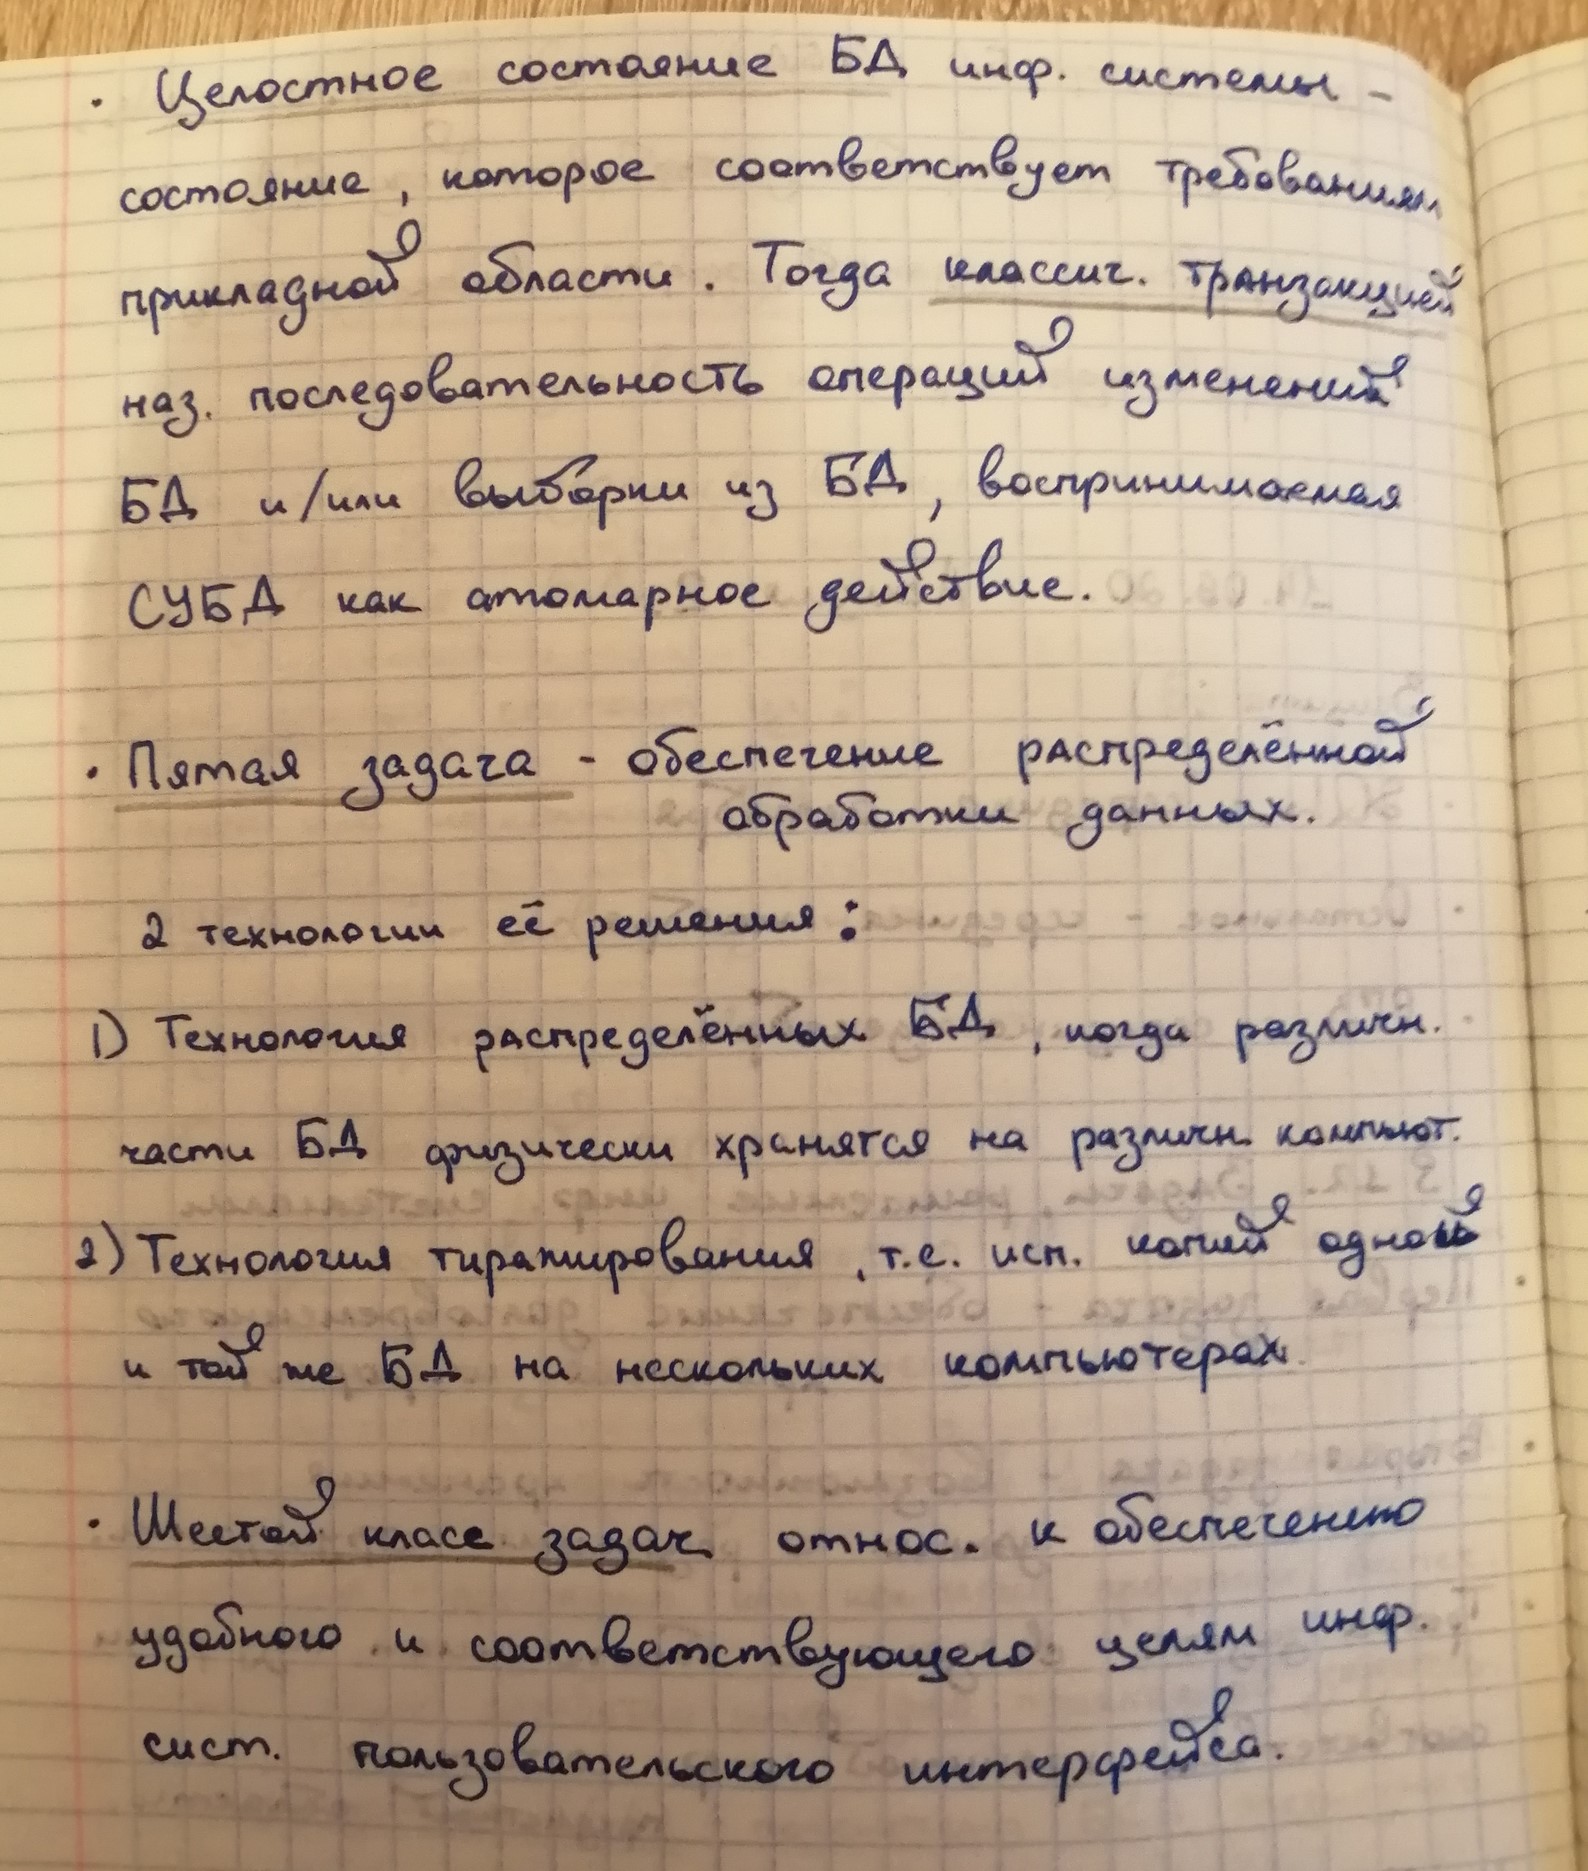 · Целостное состояние БД инф. системы -
состояние, которое соответствует требованиям
прикладной области. Тогда классич. транзакцией
наз. последовательность операций изменений
БД и/или выборки из БД, воспринимаемая
СУБД как атомарное действие.
· Пятая задача - обеспечение распределённой
обработки данных.
2 технологии её решения:
1) Технология распределённых БД, когда различн.
части БД физически хранятся на различн. компьют.
2) Технология тиражирования, т.е. исп. копий одной
и той же БД на нескольких компьютерах.
· Шестой класс задач относ. к обеспечению
удобного и соответствующего целям инф.
сист. пользовательского интерфейса.